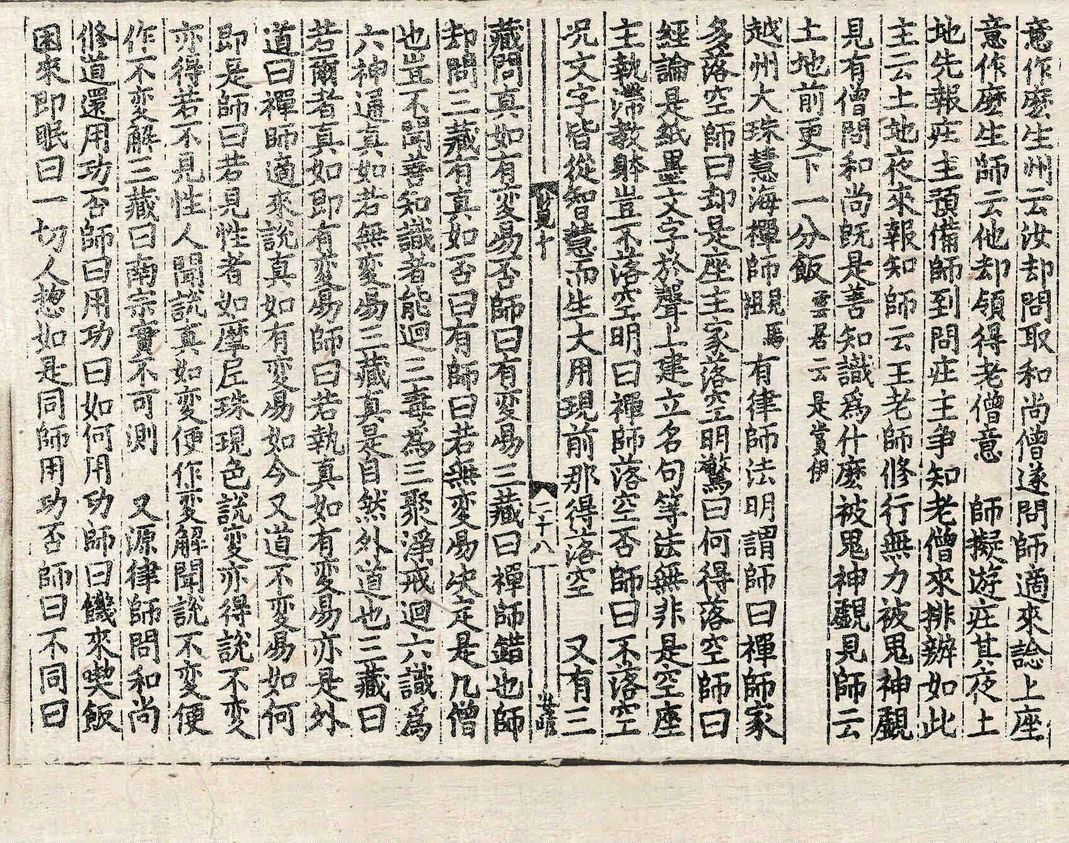 意作麽生州云汝却問取和尚僧遂問師適來諗上座
意作麽生師云他却領得老僧意　師擬遊庄其夜土
地先報庄主預備師到問庄主争知老僧來排辦如此
主云土地夜來報知師云王老師修行無力被鬼神覰
見有僧問和尚旣是善知識爲什麽被鬼神覰見師云
土地前更下一分飯 雲居云是賞伊
越州大珠慧海禪師 見馬祖 有律師法明謂師曰禪師家
多落空師曰却是座主家落空明驚曰何得落空師曰
經論是紙墨文字於聲上建立名句等法無非是空座
主執滯教躰豈不落空明曰禪師落空否師曰不落空
咒文字皆從智慧而生大用現前那得落空　又有三
八 二十八
藏問真如有変易否師曰有変易三藏曰禪師錯也師
却問三藏有真如否曰有師曰若無変易决定是凢僧
也豈不聞善知識者能迴三毒爲三聚淨戒迴六識爲
六神通真如若無変易三藏真是自然外道也三藏曰
若爾者真如即有変易師曰若執真如有変易亦是外
道曰禪師適來説真如有変易如今又道不変易如何
即是師曰若見性者如摩尼珠現色説変亦得説不変
亦得若不見性人聞説真如変便作変解聞説不変便
作不変解三藏曰南宗實不可測　又源律師問和尚
修道還用功否師曰用功曰如何用功師曰饑來喫飯
困來即眠曰一切人揔如是同師用功否師曰不同曰